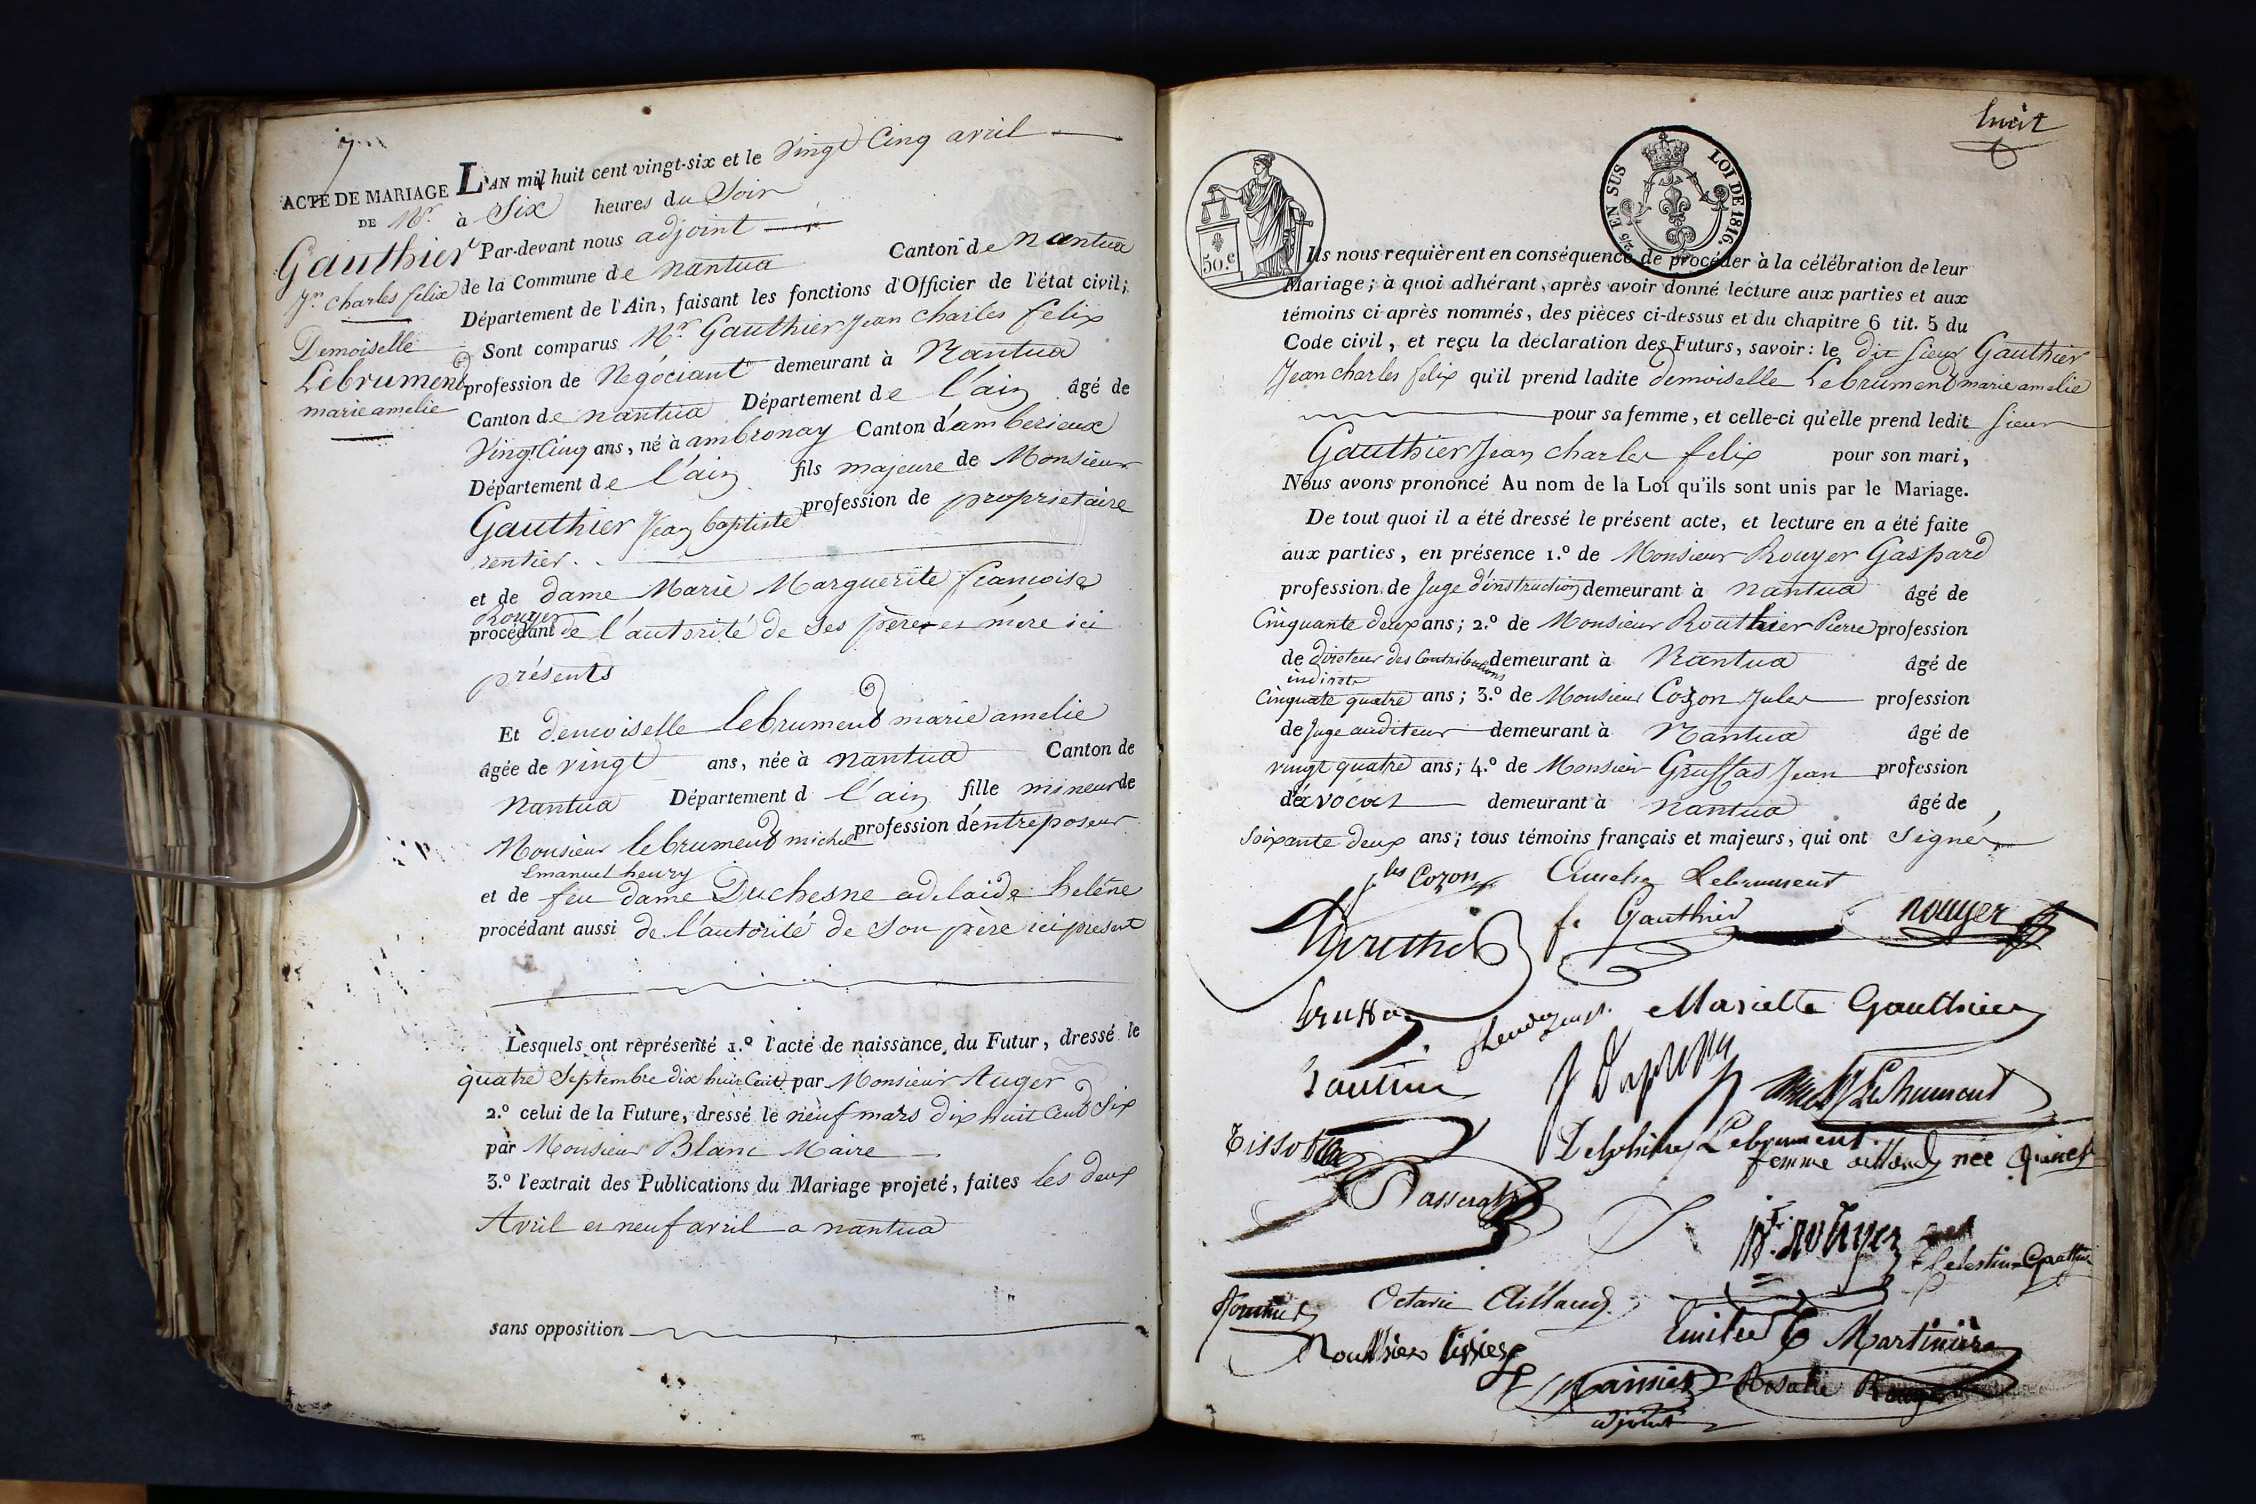 7
ACTE DE MARIAGE
DE Mr.
Gauthier
Jn. charles felix
Demoiselle
Lebrument
marie amelie
L'AN mil huit cent vingt-six et le Vingt Cinq avril
à Six heures du Soir
Par-devant nous adjoint
de la Commune de nantua Canton de nantua
Département de l'Ain, faisant les fonctions d'Officier de l'état civil;
Sont comparus Mr. Gauthier Jean charles felix
profession de Négociant demeurant à Nantua
Canton de nantua Département de l'ain âgé de
Vingt Cinq ans, né à ambronay Canton d'amberieux
Département de l'ain fils majeure de Monsieur
Gauthier Jean baptiste profession de proprietaire
rentier.
et de dame Marie Marguerite francoise
Rouyer
procédant de l'autorité de Ses père et mère ici
présents
Et demoiselle lebrument marie amelie
âgée de vingt ans, née à nantua Canton de
nantua Département d l'ain fille mineur de
Monsieur lebrument michel profession d'éntreposeur
Emanuel henry
et de feu dame Duchesne adelaide heléne
procédant aussi de l'autorité de Son père ici présent
Lesquels ont représenté 1.º l'acte de naissance du Futur, dressé le
quatre Septembre dix huit Cent par Monsieur Auger
2.º celui de la Future, dressé le neuf mars dix huit Cent Six
par Monsieur Blanc Maire
3.º l'extrait des Publications du Mariage projeté, faites les deux
Avril et neuf avril a nantua
sans opposition
huit
50.c
2/5 EN SUS
LOI DE 1816.
Ils nous requièrent en conséquence de procéder à la célébration de leur
Mariage; à quoi adhérant, après avoir donné lecture aux parties et aux
témoins ci-après nommés, des pièces ci-dessus et du chapitre 6 tit. 5 du
Code civil, et reçu la déclaration des Futurs, savoir: le dit Sieur Gauthier
Jean charles felix qu'il prend ladite demoiselle Lebrument marie amelie
pour sa femme, et celle-ci qu'elle prend ledit Sieur
Gauthier Jean charles felix pour son mari,
Nous avons prononcé Au nom de la Loi qu'ils sont unis par le Mariage.
De tout quoi il a été dressé le présent acte, et lecture en a été faite
aux parties, en présence 1.º de Monsieur Rouyer Gaspard
profession de Juge d'instruction demeurant à nantua âgé de
Cinquante deux ans; 2.º de Monsieur Routhier Pierre profession
de diroteur des Contributions demeurant à Nantua âgé de
indirote
Cinquate quatre ans; 3.º de Monsieur Cozon Jules profession
de Juge auditeur demeurant à Nantua âgé de
vingt quatre ans; 4.º de Monsieur Gruffas Jean profession
d'avocat demeurant à nantua âgé de
Soixante deux ans; tous témoins français et majeurs, qui ont Signé
Jles Cozon Amelie Lebrument
Routhier f. Gauthier rouyer
Gruffas Mariette Gauthier
Lebrument
Tissot Delphine Lebrument
femme née
Passerat
rouyer
Celestine
Octavie Aillaud
Emilie Martinière
Routhier
Rosalie Rouyer
adjoint